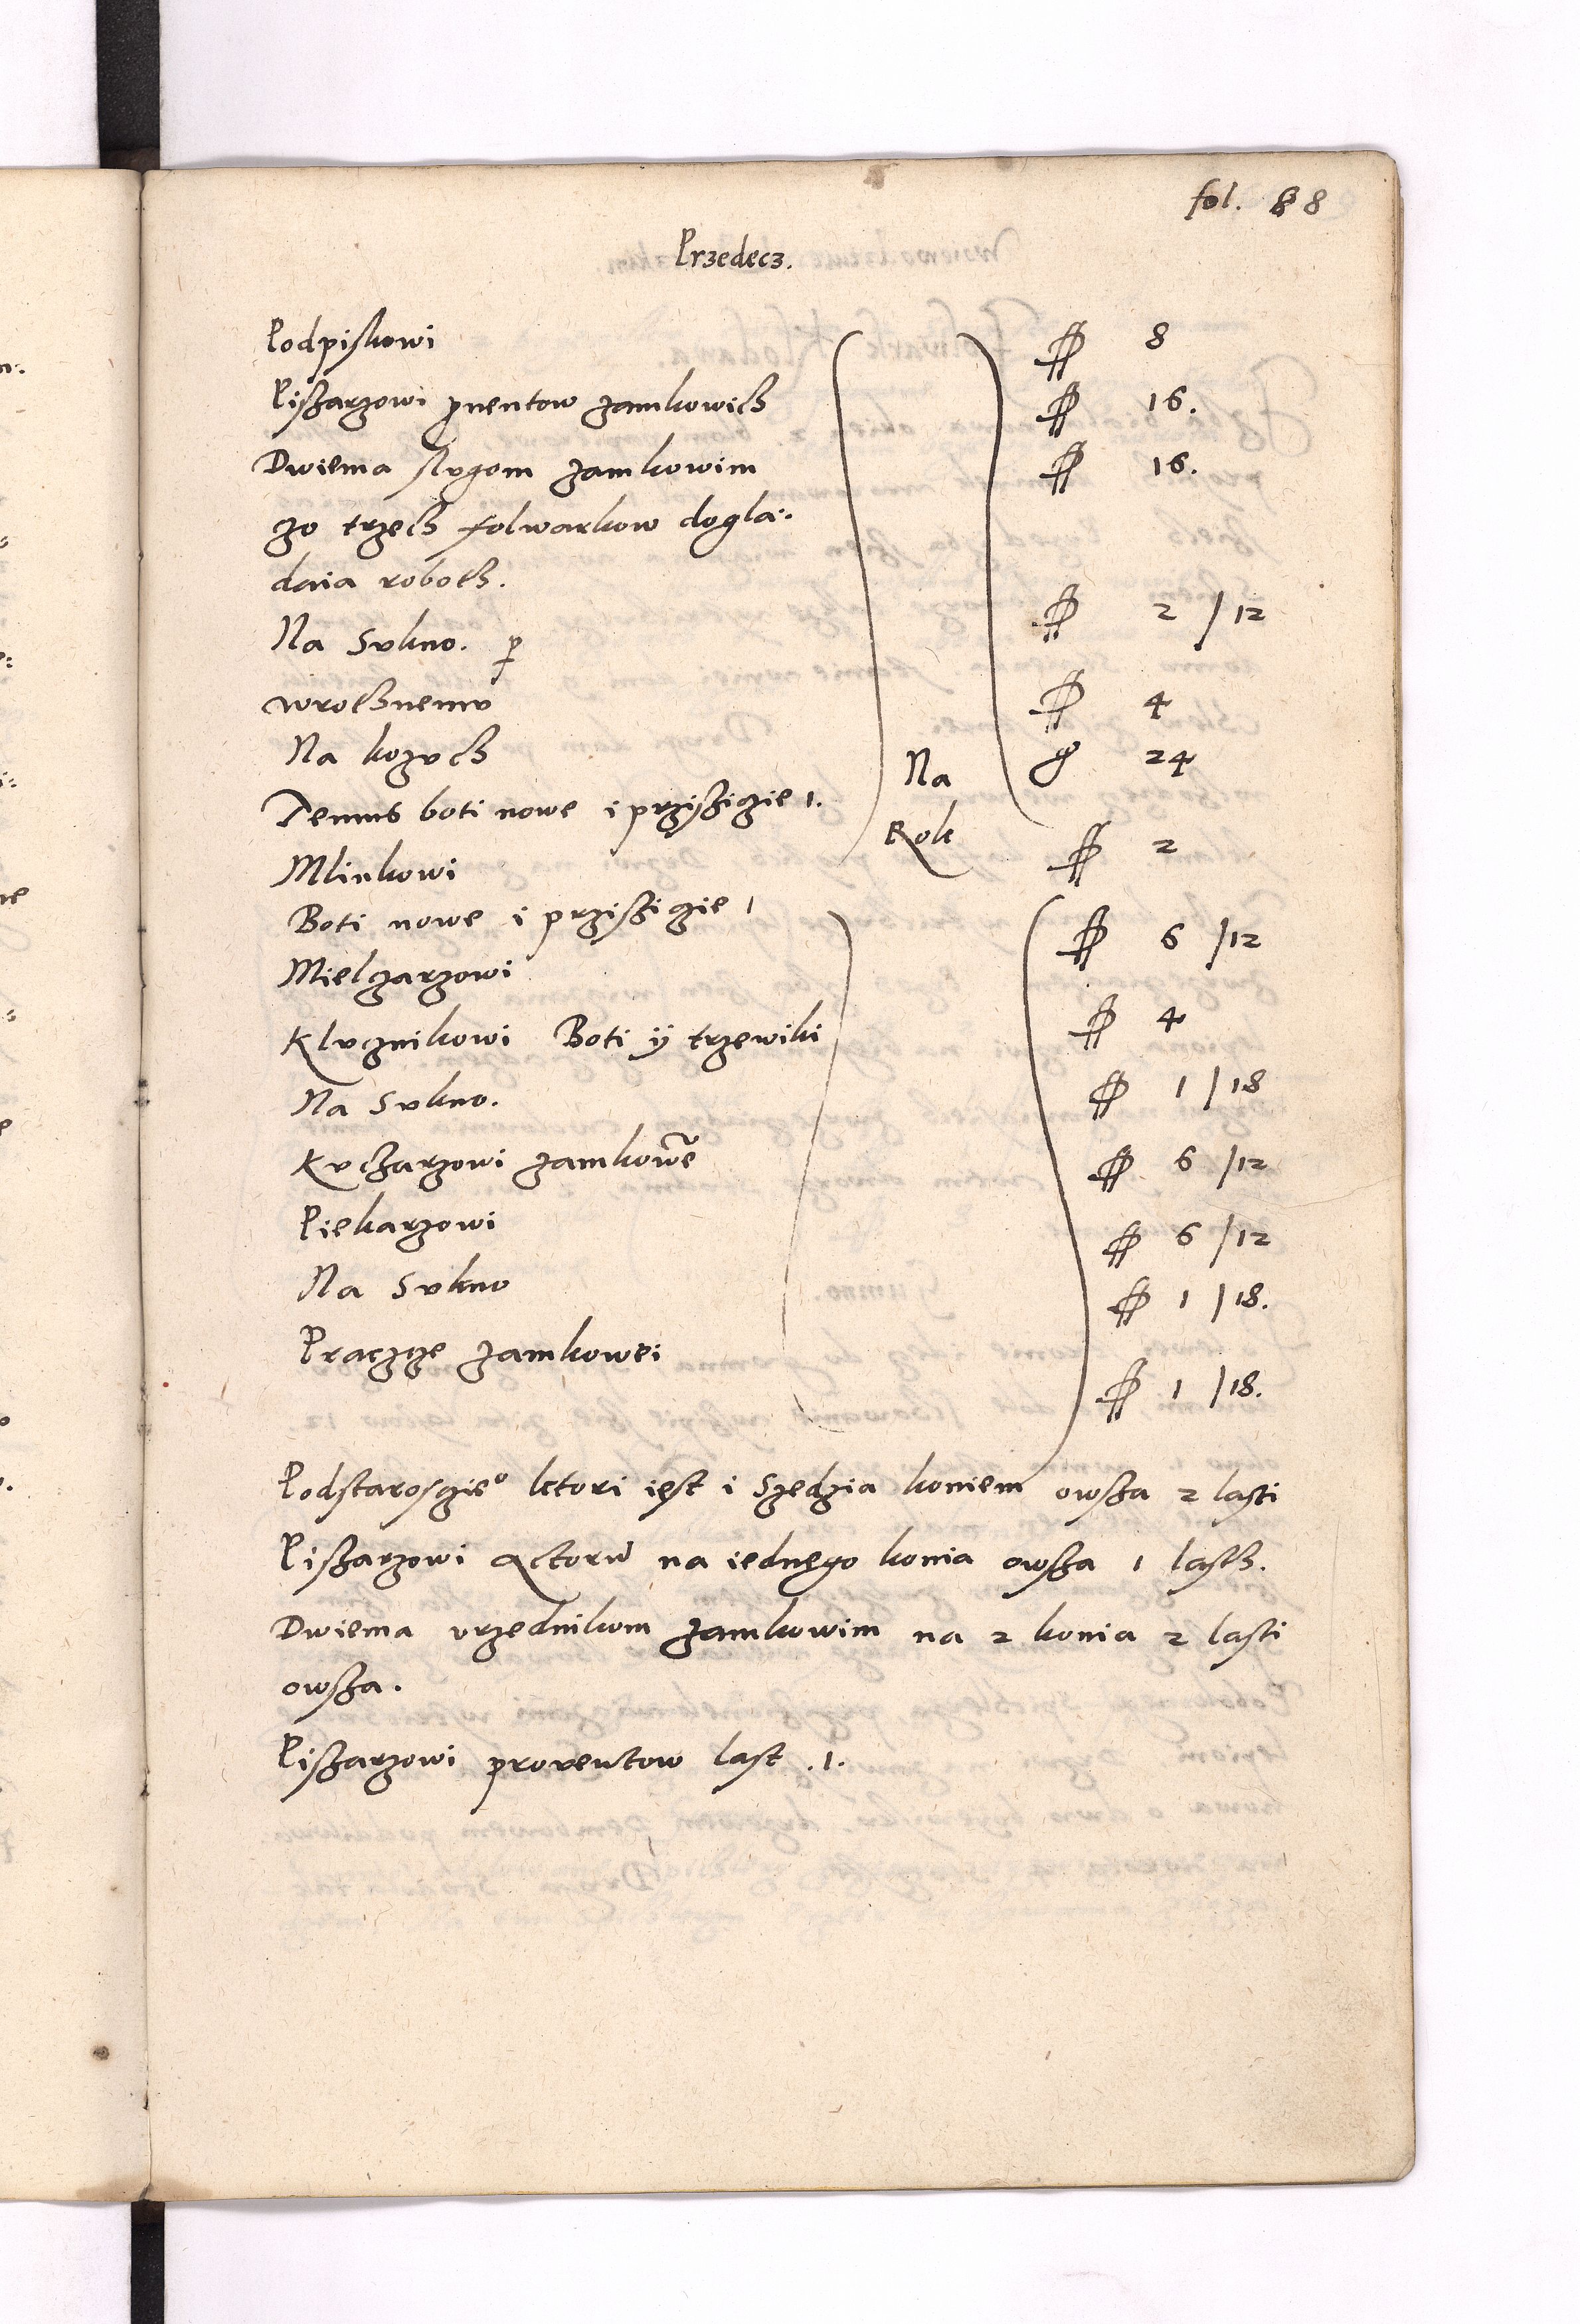 fol. 88
Przedecz.
Podpiskowi ƒƒ 8
Piszarzowi pventow zamkowich ƒƒ 16.
Dwiema slvgom zamkowim ƒƒ 16.
zo trzech folwarkow dogla:
daia roboth.
Na Svkno. p ƒƒ 2 /12
wrothnemv ƒƒ 4
Na kozvch g 24
Temus boti nowe i przisziczie 1.
Na Rok
Mlinkowi ƒƒ 2
Boti nowe i prziszczie 1
Mielczarzowi ƒƒ 6 /12
Klvcznikowi Boti ij trzewiki ƒƒ 4
Na Svkno. ƒƒ 1 /18
Kvcharzowi zamkowe ƒƒ 6 /12
Piekarzowi ƒƒ 6 /12
Na Svkno ƒƒ 1 /18.
Praczcze zamkowei ƒƒ 1 /18.
Podstarosczieo ktori iest i Szedzia koniem owsza 2 lasti
Piszarzowi Actorum na iednego konia owsza 1 lasth.
Dwiema vrzednikom zamkowim na 2 konia 2 lasti
owsza.
Piszarzowi proventow last .1.